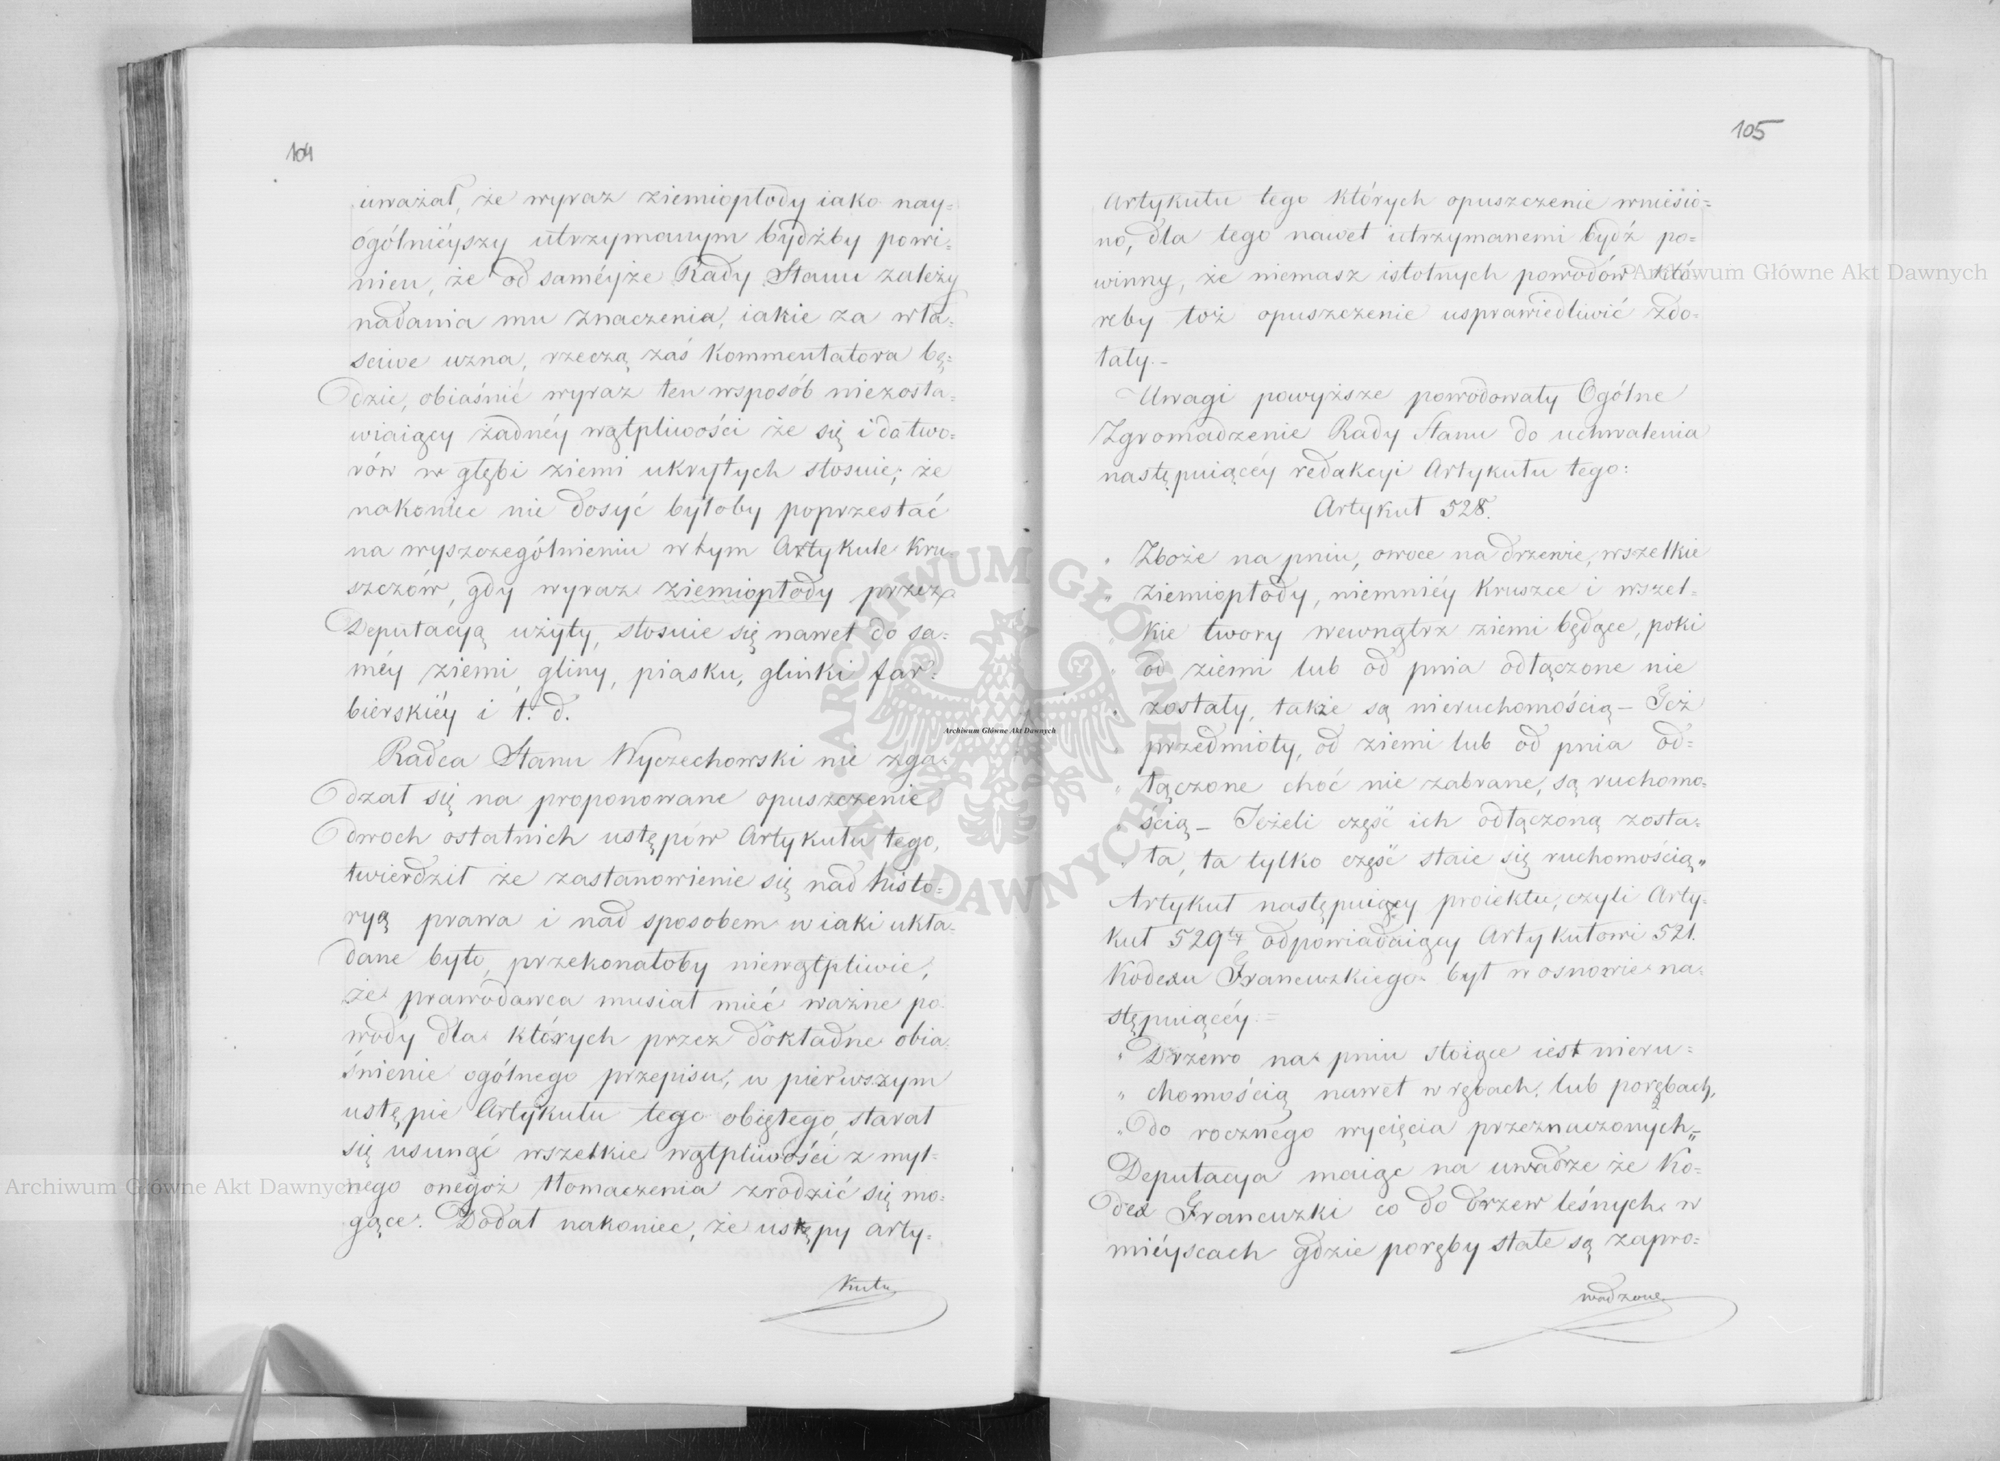 104
uważał, że wyraz ziemiopłody iako nay=
ogólniéyszy utrzymanym bydźby powi=
nien, że od saméyże Rady Stanu zależy
nadania mu znaczenia, iakie za wła=
sciwe uzna, rzeczą zaś Kommentatora bę=
dzie, obiaśnić wyraz ten wsposób niezosta=
wiaiący żadnéy wątpliwości że się i do two=
rów w głębi ziemi ukrytych stosuie; że
nakoniec nie dosyć byłoby poprzestać
na wyszczególnieniu w tym Artykule Kru=
szczów, gdy wyraz ziemiopłody przez
Deputacyą użyty, stosuie się nawet do sa=
méy ziemi, gliny, piasku, glinki far=
bierskiéy i t. d.
Radca Stanu Wyczechowski nie zga=
dzał się na proponowane opuszczenie
dwoch ostatnich ustępów Artykułu tego,
twierdził że zastanowienie się nad histo=
ryą prawa i nad sposobem w iaki ukła=
dane było, przekonałoby niewątpliwie,
że prawodawca musiał mieć ważne po=
wody dla których przez dokładne obia=
śnienie ogólnego przepisu, w pierwszym
ustępie Artykułu tego obiętego, starał
się usunąć wszelkie wątpliwości z myl=
nego onegoż tłomaczenia zrodzić się mo=
gące. Dodał nakoniec, że ustępy Arty=
kułu
105
Artykułu tego których opuszczenie wniesio=
no, dla tego nawet utrzymanemi bydź po=
winny, że niemasz istotnych powodów któ=
reby toż opuszczenie usprawiedliwić zdo=
łały.—
Uwagi powyższe powodowały Ogólne
Zgromadzenie Rady Stanu do uchwalenia
następuiącéy redakcyi Artykułu tego:
Artykuł 528.
„ Zboże na pniu, owoce na drzewie, wszelkie
„ ziemiopłody, niemniéy Kruszce i wszel=
„ kie twory wewnątrz ziemi będące, poki
„ od ziemi lub od pnia odłączone nie
„ zostały, także są nieruchomością — Też
„ przedmioty, od ziemi lub od pnia od=
„ łączone choć nie zabrane, są ruchomo=
„ ścią — Jeżeli część ich odłączoną zosta=
„ ła, ta tylko część staie się ruchomością„
Artykuł następuiący proiektu, czyli Arty=
kuł 529ty odpowiadaiący Artykułowi 521.
Kodexu Francuzkiego był w osnowie na=
stępuiącéy: =
„ Drzewo na pniu stoiące iest nieru=
„ chomością nawet w rębach, lub porębach,
„ do rocznego wycięcia przeznaczonych„=
Deputacya maiąc na uwadze że Ko=
dex Francuzki co do drzew leśnych w
miéyscach gdzie poręby stałe są zapro=
wadzone
Archiwum Główne Akt Dawnych
Archiwum Główne Akt Dawnych
Archiwum Główne Akt Dawnych
ARCHIWUM GŁÓWNE AKT DAWNYCH